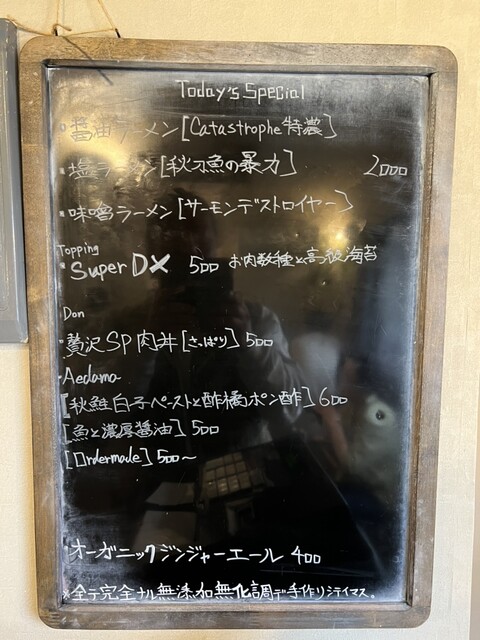 Today's Special
・醤油ラーメン[Catastrophe特濃]
・塩ラーメン[秋刀魚の暴力] 2000
・味噌ラーメン[サーモンデストロイヤー]
Topping
・Super DX 500 お肉数種と高級海苔
Don
・贅沢SP肉丼[さっぱり] 500
・Aedama
[秋鮭白子ペーストと酢橘ポン酢] 600
[魚と濃厚醤油] 500
[Ordermade] 500〜
・オーガニックジンジャーエール 400
※全テ完全ナル無添加無化調デ手作リシテイマス。